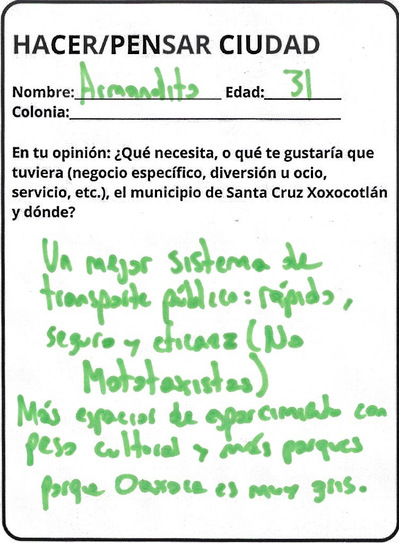 HACER/PENSAR CIUDAD
Nombre: Armandito Edad: 31
Colonia:
En tu opinión: ¿Qué necesita, o qué te gustaría que
tuviera (negocio específico, diversión u ocio,
servicio, etc.), el municipio de Santa Cruz Xoxocotlán
y dónde?
Un mejor sistema de
transporte público: rápido,
seguro y eficaz (No
Mototaxistas)
Más espacios de esparcimiento con
peso cultural y más parques
porque Oaxaca es muy gris.